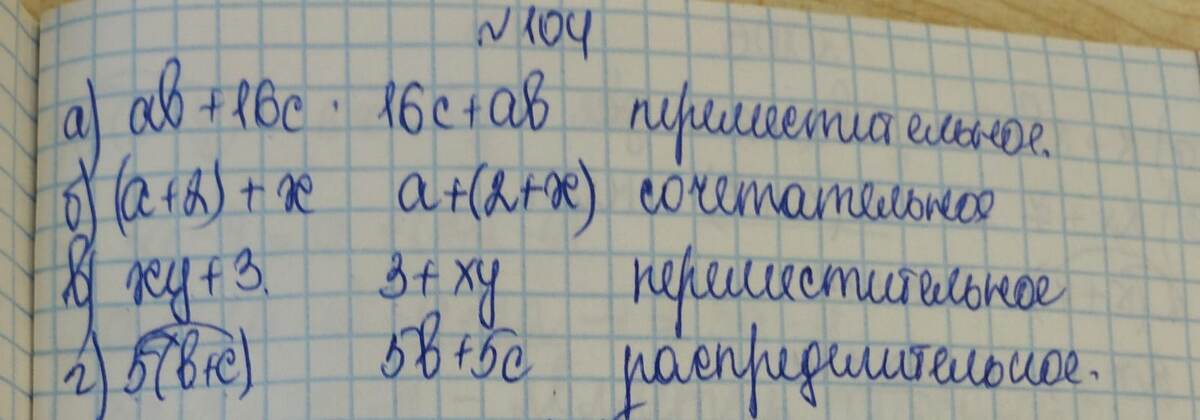 №104
а) ab + 16c · 16c + ab переместительное.
б) (a+2) + x a + (2+x) сочетательное
в) xy + 3. 3 + xy переместительное
г) 5(b+c) 5b + 5c распределительное.